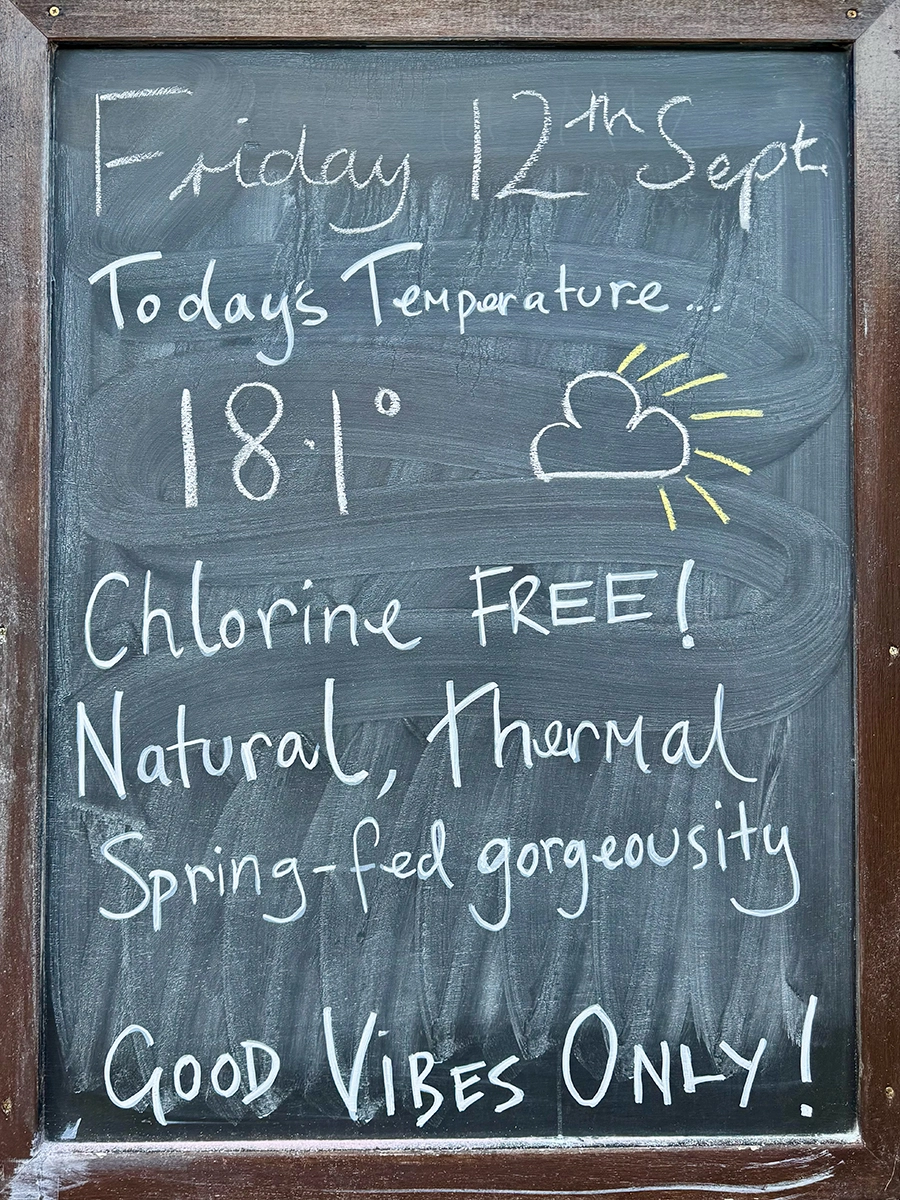 Friday 12th Sept.
Today's Temperature...
18.1°
Chlorine FREE!
Natural, thermal
Spring-fed gorgeousity
GOOD VIBES ONLY!